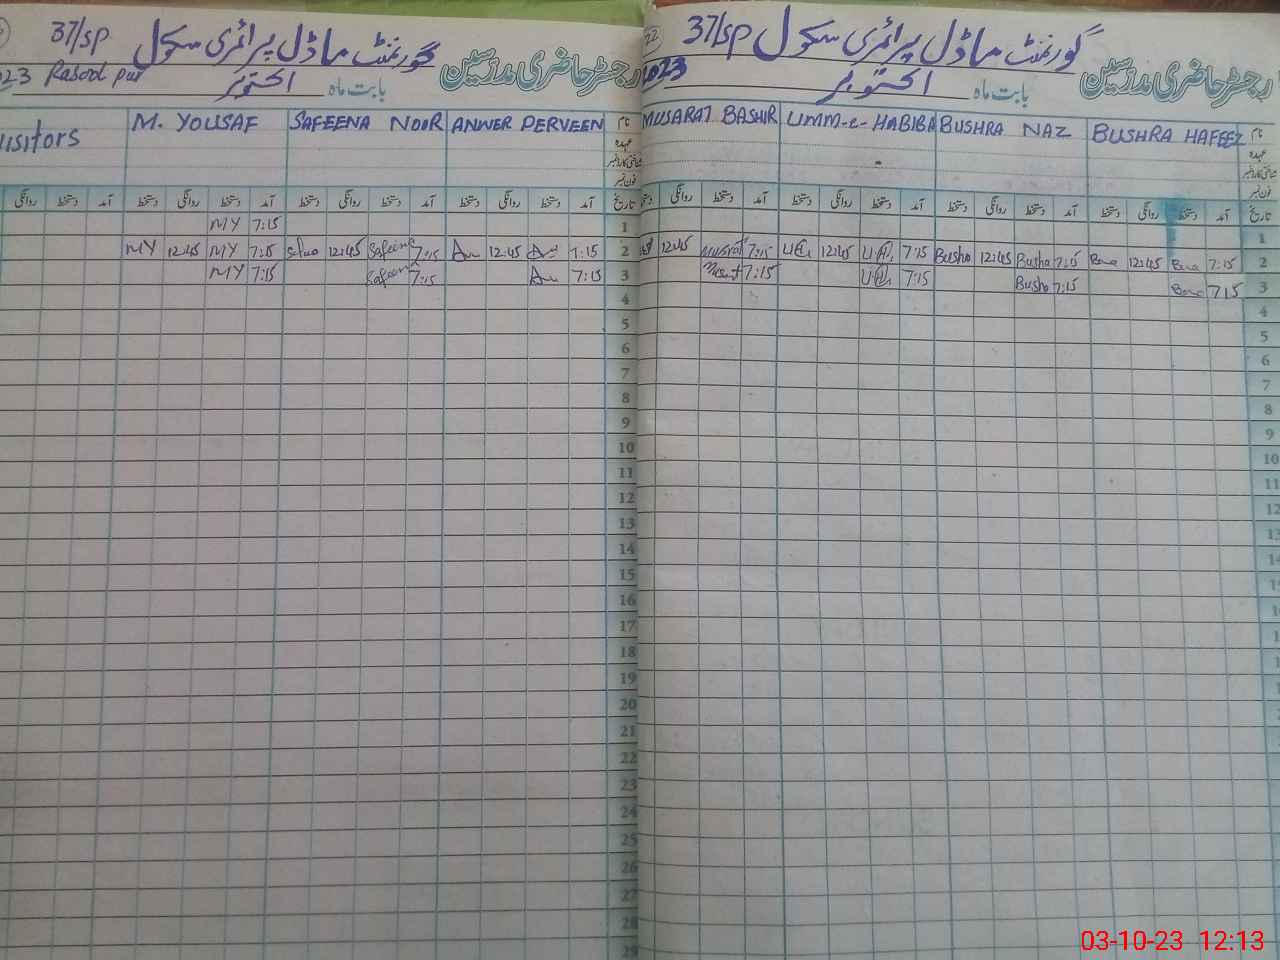 37/SP گورنمنٹ ماڈل پرائمری سکول
2023 Rasool pur اکتوبر بابت ماہ رجسٹر حاضری مدرسین
Visitors M. YOUSAF SAFEENA NOOR ANWER PERVEEN نام
عہدہ
شناختی کارڈ نمبر
فون نمبر
روانگی دستخط آمد دستخط روانگی دستخط آمد دستخط روانگی دستخط آمد دستخط روانگی دستخط آمد تاریخ
MY 7:15 1
MY 12:45 MY 7:15 12:45 Safeena 7:15 12:45 7:15 2
MY 7:15 Safeena 7:15 7:15 3
4
5
6
7
8
9
10
11
12
13
14
15
16
17
18
19
20
21
22
23
24
25
26
27
28
29
22 37/SP گورنمنٹ ماڈل پرائمری سکول
2023 اکتوبر بابت ماہ رجسٹر حاضری مدرسین
MUSARAT BASHIR UMM-e-HABIBA BUSHRA NAZ BUSHRA HAFEEZ نام
عہدہ
شناختی کارڈ نمبر
فون نمبر
دستخط روانگی دستخط آمد دستخط روانگی دستخط آمد دستخط روانگی دستخط آمد دستخط روانگی دستخط آمد تاریخ
1
12:45 Musrat 7:15 12:45 7:15 Bushra 12:45 Bushra 7:15 12:45 7:15 2
7:15 7:15 Bushra 7:15 715 3
4
5
6
7
8
9
10
11
12
13
14
03-10-23 12:13